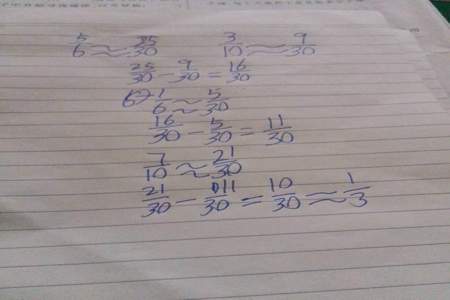 5/6 ≈ 25/30 3/10 ≈ 9/30
25/30 - 9/30 = 16/30
6> 1/6 ≈ 5/30
16/30 - 5/30 = 11/30
7/10 ≈ 21/30
21/30 - 11/30 = 10/30 ≈ 1/3